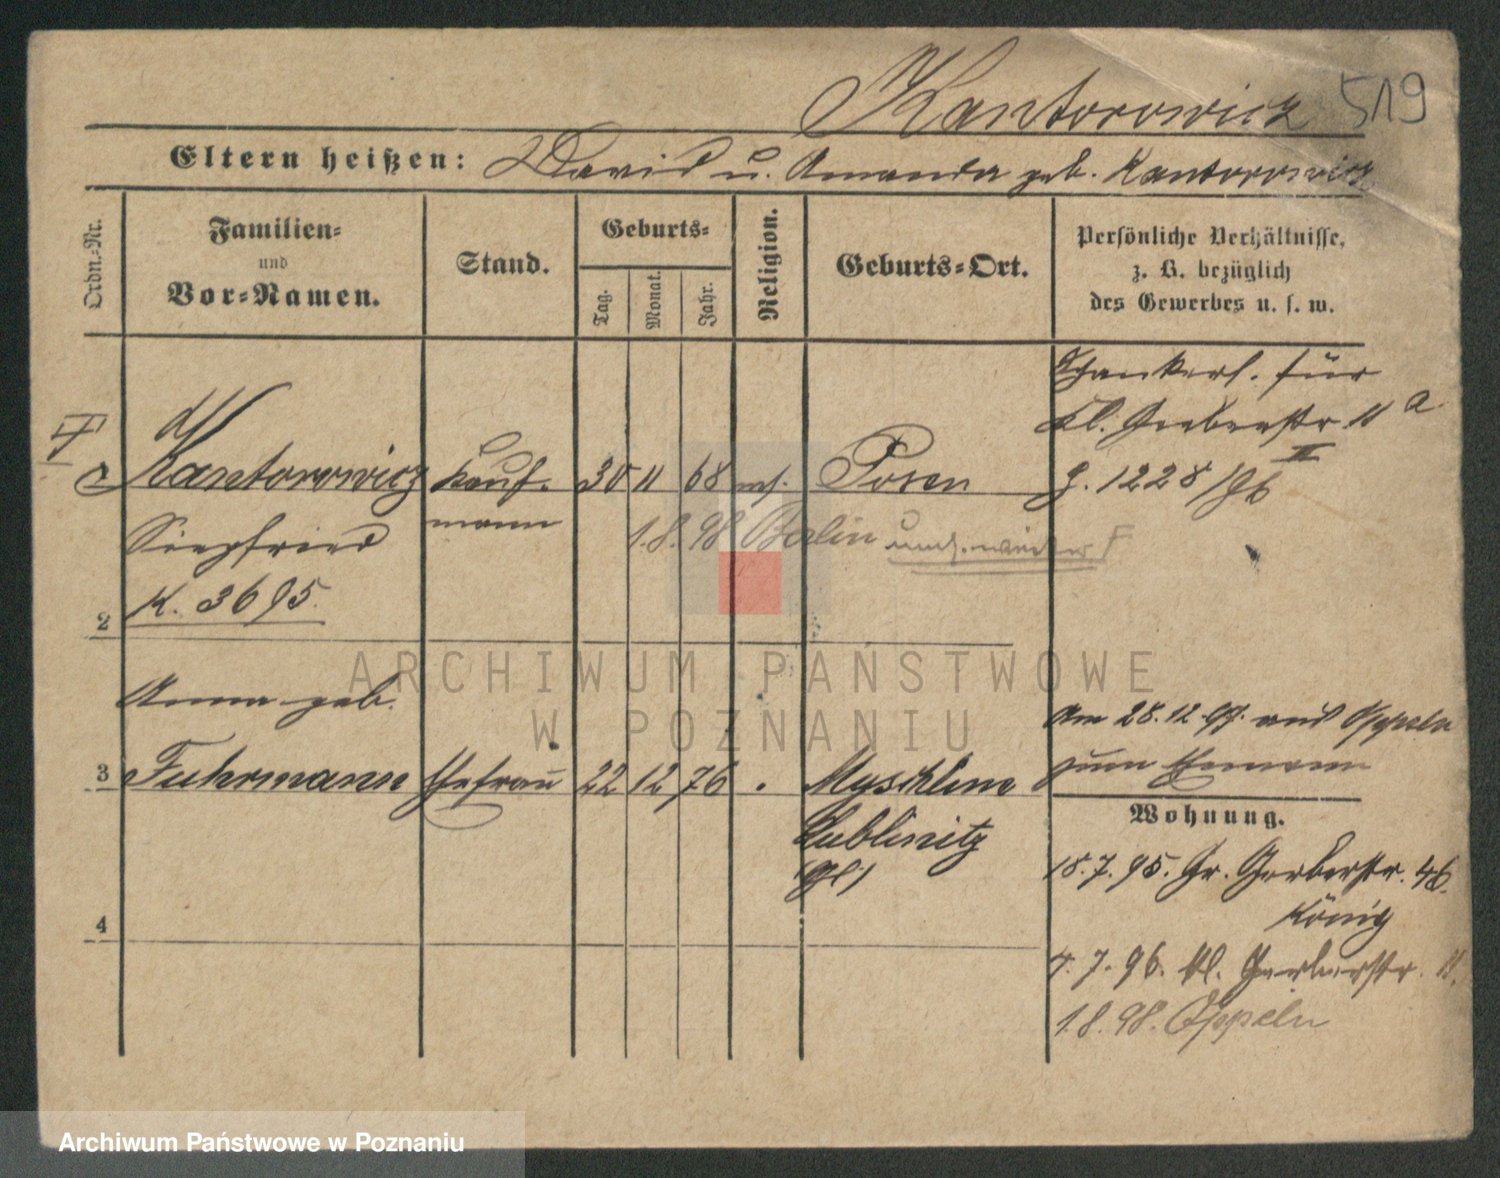 Kantorowicz 519
Eltern heißen: David u. Amanda geb. Kantorowicz
Ordn.-Nr.
Familien-
und
Vor-Namen.
Stand.
Geburts-
Tag.
Monat.
Jahr.
Religion.
Geburts-Ort.
Persönliche Verhältnisse,
z. B. bezüglich
des Gewerbes u. s. w.
Kantorowicz Kauf- 30 11 68 Posen
mann
Siegfried
K. 3695.
Schankerl. für
Kl. Gerberstr. 11 a
II
G. 1228/96
1.8.98 Berlin
2
Anna geb.
3 Fuhrmann Ehefrau 22 12 76 Myschline
Lublinitz
Am 28.12.97. aus Oppeln
zum Ehemann
Wohnung.
18.7.95. Gr. Gerberstr. 46.
König
4.7.96. Kl. Gerberstr. 11.
1.8.98. Oppeln
4
ARCHIWUM PAŃSTWOWE
W POZNANIU
Archiwum Państwowe w Poznaniu